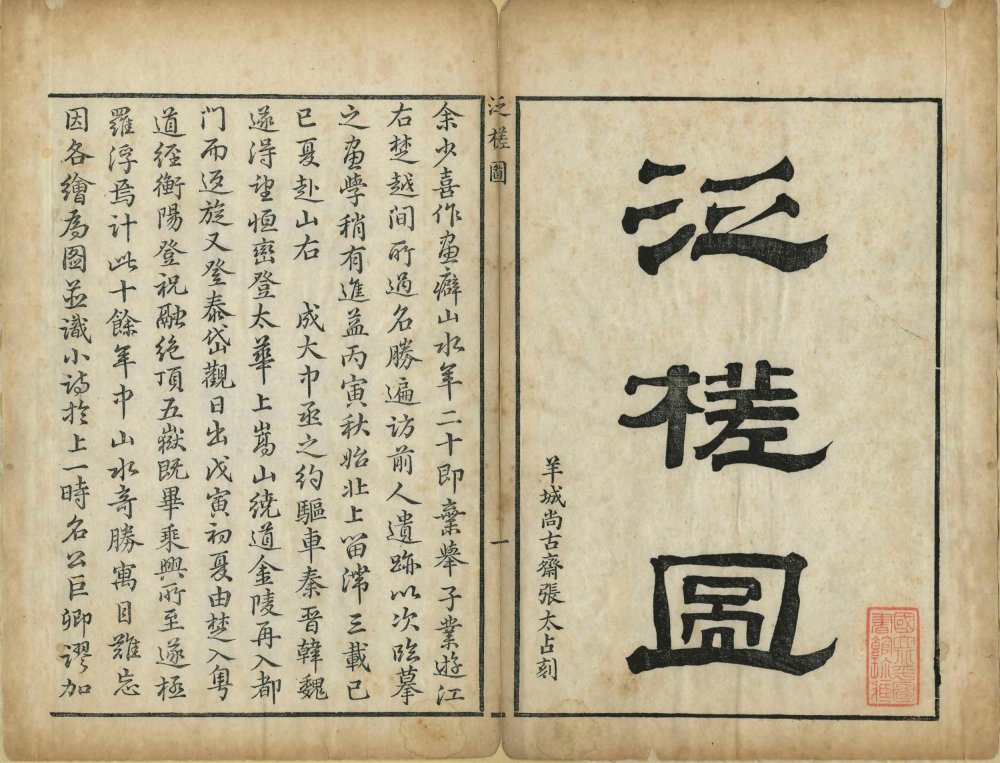 泛槎圖
羊城尚古齋張太占刻
國立北平圖
書館珍藏
泛槎圖
一
余少喜作畫癖山水年二十即棄舉子業遊江
右楚越間所過名勝遍訪前人遺跡以次臨摹
之畫學稍有進益丙寅秋始北上留滯三載己
巳夏赴山右 成大中丞之約驅車秦晉韓魏
遂得望恒嶽登太華上嵩山繞道金陵再入都
門而返旋又登泰岱觀日出戊寅初夏由楚入粵
道經衡陽登祝融絕頂五嶽既畢乘興所至遂極
羅浮焉計此十餘年中山水奇勝寓目難忘
因各繪為圖並識小詩於上一時名公巨卿謬加